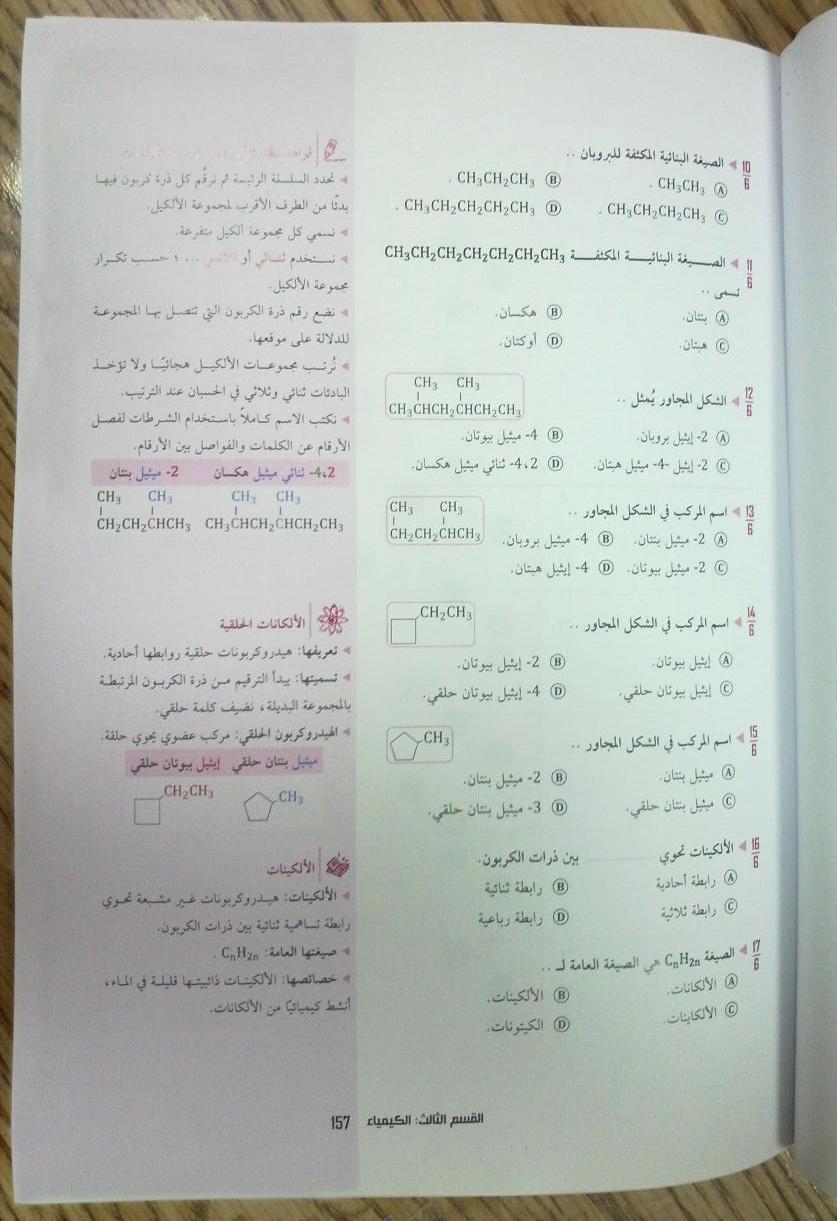 10/6 الصيغة البنائية المكثفة للبروبان ..
Ⓐ CH₃CH₃ . Ⓑ CH₃CH₂CH₃ .
Ⓒ CH₃CH₂CH₂CH₃ . Ⓓ CH₃CH₂CH₂CH₂CH₃ .
11/6 الصيغة البنائية المكثفة CH₃CH₂CH₂CH₂CH₂CH₂CH₃
تسمى ..
Ⓐ بنتان. Ⓑ هكسان.
Ⓒ هبتان. Ⓓ أوكتان.
12/6 الشكل المجاور يُمثل ..
CH₃ CH₃
CH₃CHCH₂CHCH₂CH₃
Ⓐ 2- إيثيل بروبان. Ⓑ 4- ميثيل بيوتان.
Ⓒ 2- إيثيل -4- ميثيل هبتان. Ⓓ 2،4- ثنائي ميثيل هكسان.
13/6 اسم المركب في الشكل المجاور ..
CH₃ CH₃
CH₂CH₂CHCH₃
Ⓐ 2- ميثيل بنتان. Ⓑ 4- ميثيل بروبان.
Ⓒ 2- ميثيل بيوتان. Ⓓ 4- إيثيل هبتان.
14/6 اسم المركب في الشكل المجاور ..
CH₂CH₃
Ⓐ إيثيل بيوتان. Ⓑ 2- إيثيل بيوتان.
Ⓒ إيثيل بيوتان حلقي. Ⓓ 4- إيثيل بيوتان حلقي.
15/6 اسم المركب في الشكل المجاور ..
CH₃
Ⓐ ميثيل بنتان. Ⓑ 2- ميثيل بنتان.
Ⓒ ميثيل بنتان حلقي. Ⓓ 3- ميثيل بنتان حلقي.
16/6 الألكينات تحوي .......... بين ذرات الكربون.
Ⓐ رابطة أحادية Ⓑ رابطة ثنائية
Ⓒ رابطة ثلاثية Ⓓ رابطة رباعية
17/6 الصيغة CₙH₂ₙ هي الصيغة العامة لـ ..
Ⓐ الألكانات. Ⓑ الألكينات.
Ⓒ الألكاينات. Ⓓ الكيتونات.
قواعد
نحدد السلسلة الرئيسة ثم نرقّم كل ذرة كربون فيها
بدءًا من الطرف الأقرب لمجموعة الألكيل.
نسمي كل مجموعة ألكيل متفرعة.
نستخدم ثنائي أو ثلاثي ... ؛ حسب تكرار
مجموعة الألكيل.
نضع رقم ذرة الكربون التي تتصل بها المجموعة
للدلالة على موقعها.
نُرتب مجموعات الألكيل هجائيًا ولا تؤخذ
البادئات ثنائي وثلاثي في الحسبان عند الترتيب.
نكتب الاسم كاملاً باستخدام الشرطات لفصل
الأرقام عن الكلمات والفواصل بين الأرقام.
2،4- ثنائي ميثيل هكسان 2- ميثيل بنتان
CH₃ CH₃ CH₃ CH₃
CH₂CH₂CHCH₃ CH₃CHCH₂CHCH₂CH₃
الألكانات الحلقية
تعريفها: هيدروكربونات حلقية روابطها أحادية.
تسميتها: يبدأ الترقيم من ذرة الكربون المرتبطة
بالمجموعة البديلة، نضيف كلمة حلقي.
الهيدروكربون الحلقي: مركب عضوي يحوي حلقة.
ميثيل بنتان حلقي إيثيل بيوتان حلقي
CH₂CH₃ CH₃
الألكينات
الألكينات: هيدروكربونات غير مشبعة تحوي
رابطة تساهمية ثنائية بين ذرات الكربون.
صيغتها العامة: CₙH₂ₙ .
خصائصها: الألكينات ذائبيتها قليلة في الماء،
أنشط كيميائيًا من الألكانات.
القسم الثالث: الكيمياء 157